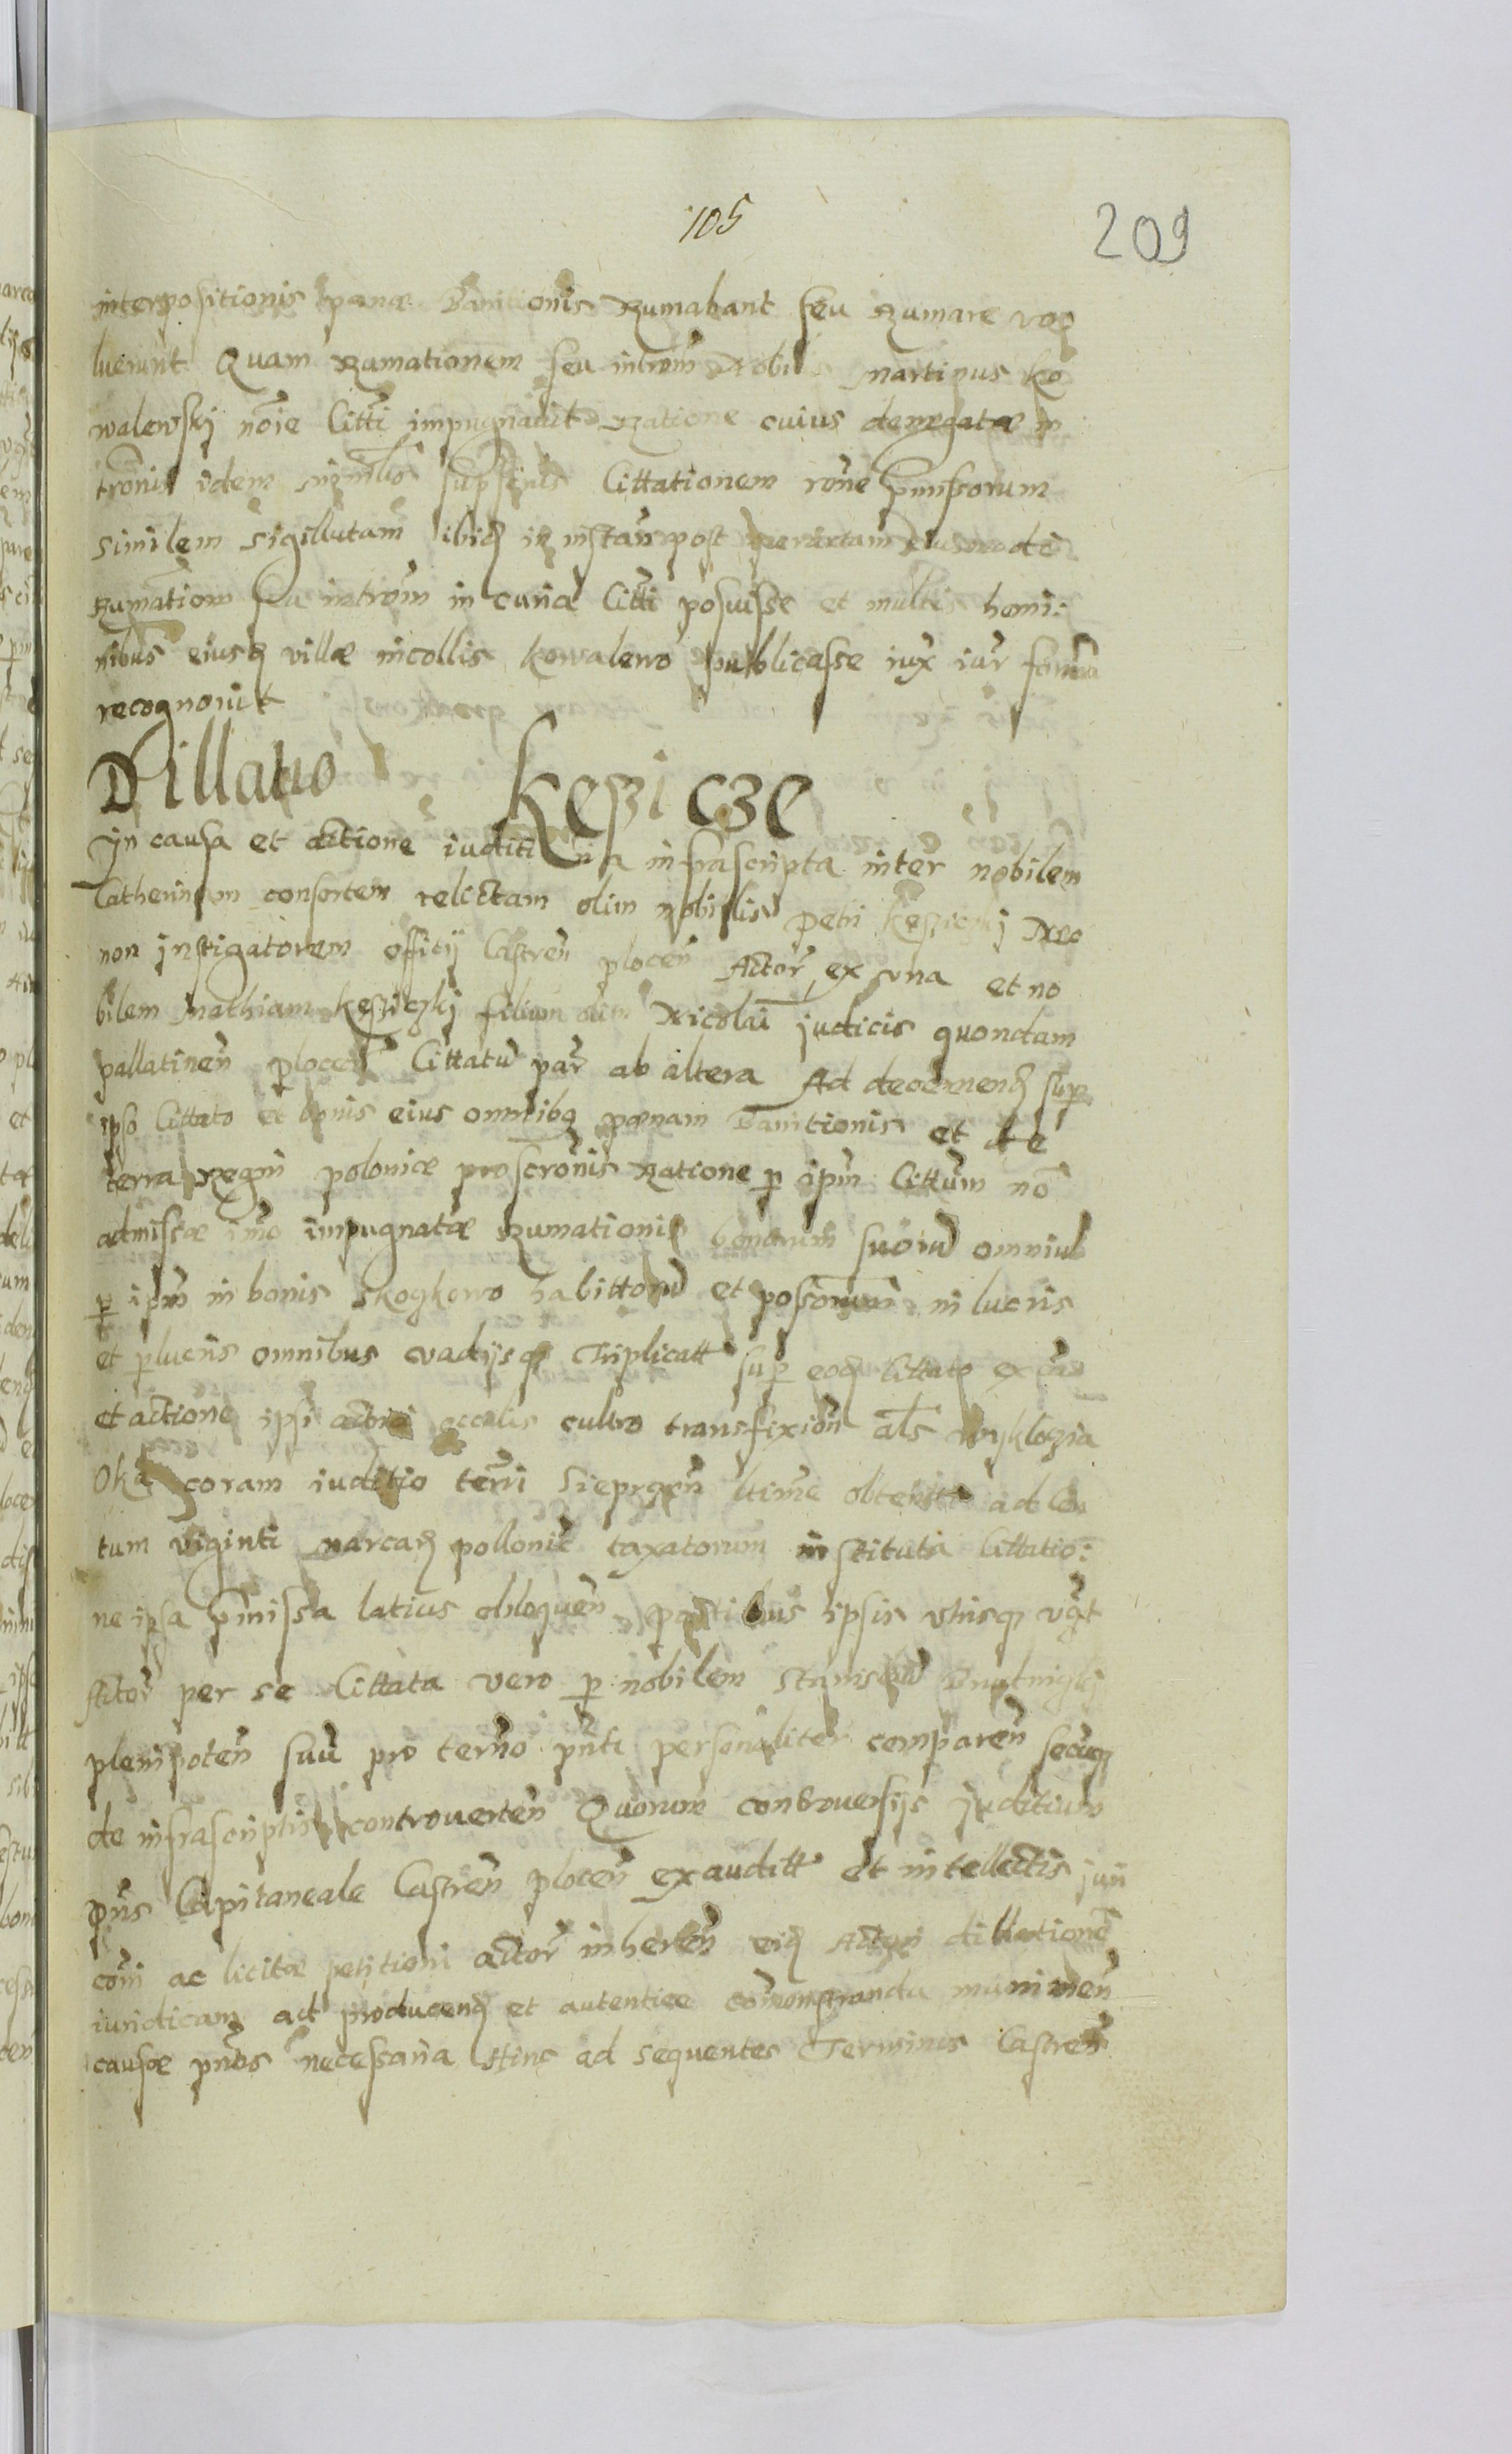 105
209
interpositionis pænæ Banitionis Rumabant seu Rumare vo
luerunt Quam Rumationem seu introm̄ Nobil Martinus Ko
walewskj noīe Citti impugnavit Ratione cuius denegatæ in
tronis idem mīnlis Cittationem rōne pmissorum
similem sigillatam ibid in instan post peractam
Rumationm seu introm̄ in curia Citti posuisse et multis homi:
nibus eiusd villæ incollis Kowalewo publicasse iux iur formā
recognovit
Dillatio Kęsicze
In causa et actione iuditi ria infrascripta inter nobilem
Catherinam consortem relictam olim nobilis Petri Kęsiczkj Nec
non instigatorem offitij Castren plocen Actor ex una et no
bilem Mathiam Kęsiczkj filium olim Nicolai judicis quondam
pallatinen plocen Cittatū par ab altera Ad decernend sup
ipso Cittato et bonis eius omnibq pænam Banitionis et de
terra regni poloniæ proscronis Ratione p ipm̄ Cittum nō
admissæ imo impugnatæ Rumationis bonorum suorū omniū
p ipm̄ in bonis Skogkowo habittorū et possorum in lucris
et plucris omnibus vadijsq Triplicatt sup eod Cittato ex cā
et actione ipsi actrici occulis cultro transfixion als wyklozia
Oka coram iuditio terri Sieprcen ltime obtentt ad cen
tum viginti marcar pollonic taxatorum instituta Cittatio:
ne ipsa pmissa latius obloquen partibus ipsis utrisq vgt
Actor per se Cittata vero p nobilem Stanislaū
plenipoten suū pro termo pnti personaliter comparen secuq
de infrascriptis controverten Quorum controversijs Juditium
pns Capitaneale Castren plocen exauditt et intellectis juri
comi ac licitæ petitioni actor inheren eid Actori dillationē
iuridicam ad producend et autentice comonstranda munimen
causæ pntis necessaria Hinc ad sequentes Terminos Castren